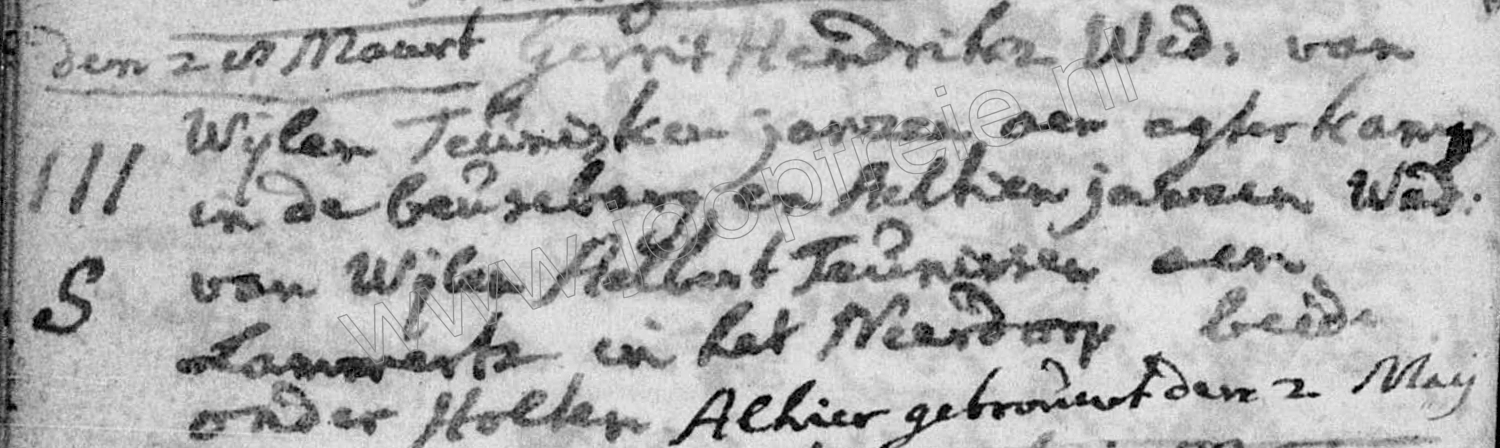 den 21 Maart Gerrit Hendriks Wed: van
Wijlen Teunisken janzen aen agterkamp
III in de beuseberg, en Aelhien janzen Wed:
S van Wijlen Aelbert Teunissen aen
Lammerts in het Neerdorp beide
onder Holten Alhier getrouwt den 2 Maij
www.jooptreie.nl